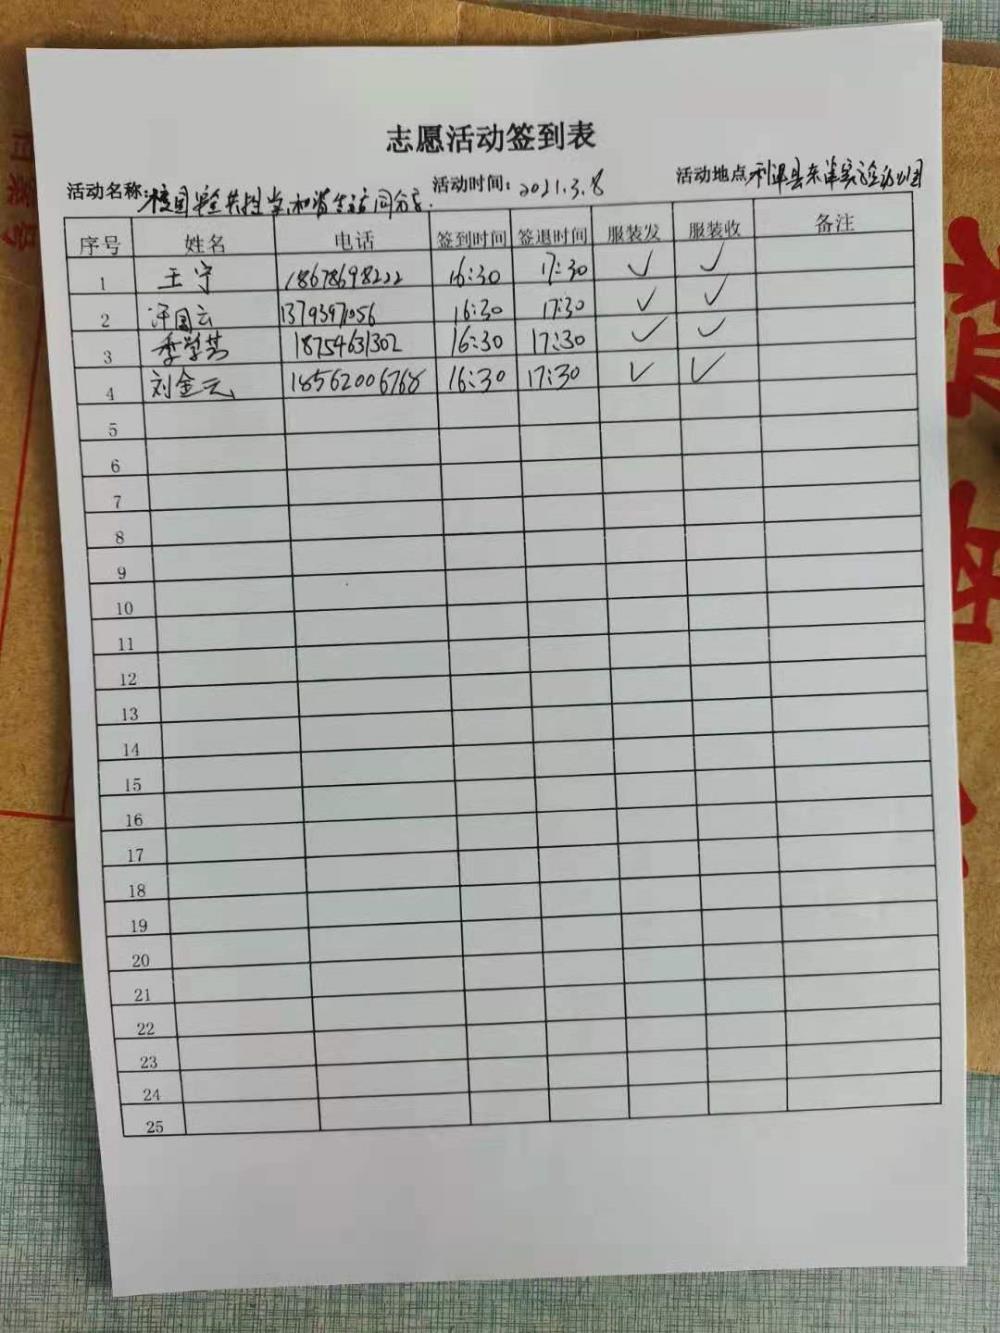 志愿活动签到表
活动名称: 校园 活动时间: 2021.3.8 活动地点 利津县东津实验幼儿园
序号 姓名 电话 签到时间 签退时间 服装发 服装收 备注
1 王宁 18678698222 16:30 17:30 ✓ ✓
2 许国云 13793971056 16:30 17:30 ✓ ✓
3 季学芸 18754631302 16:30 17:30 ✓ ✓
4 刘金云 18562006768 16:30 17:30 ✓ ✓
5
6
7
8
9
10
11
12
13
14
15
16
17
18
19
20
21
22
23
24
25